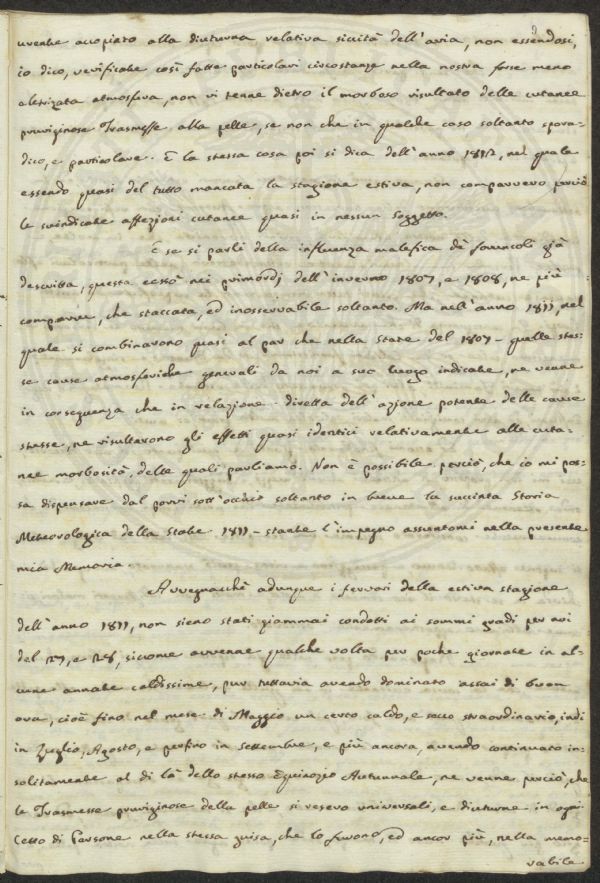 uvente accopiato alla diuturna relativa siccità dell'aria, non essendosi,
io dico, verificate così fatte particolari circostanze nella nostra forse meno
eletrizata atmosfera, non vi tenne dietro il morboso risultato delle cutanee
pruriginose Trasmesse alla pelle, se non che in qualche caso soltanto spora-
dico, e particolare. E la stessa cosa poi si dica dell'anno 1812, nel quale
essendo quasi del tutto mancata la stagione estiva, non comparvero perciò
le suindicate affezioni cutanee quasi in nessun soggetto.
E se si parli della influenza malefica de' foruncoli già
descritta, questa cessò nei primordj dell'inverno 1807, e 1808, ne più
comparve, che staccata, ed inosservabile soltanto. Ma nell'anno 1811, nel
quale si combinarono quasi al par che nella State del 1807 - quelle stes-
se cause atmosferiche generali da noi a suo luogo indicate, ne venne
in conseguenza che in relazione diretta dell'azione potente delle cause
stesse, ne risultarono gli effetti quasi identici relativamente alle cuta-
nee morbosità, delle quali parliamo. Non è possibile perciò, che io mi pos-
sa dispensare dal porvi sott'occhio soltanto in breve la succinta Storia
Meteorologica della State 1811 - stante l'impegno assuntomi nella presente
mia Memoria.
Avvegnacchè adunque i fervori della estiva stagione
dell'anno 1811, non sieno stati giammai condotti ai sommi gradi per noi
del 27, e 28, siccome avvenne qualche volta per poche giornate in al-
cune annate caldissime, pur tuttavia avendo dominato assai di buon
ora, cioè fino nel mese di Maggio un certo caldo, e secco straordinario, indi
in Luglio, Agosto, e perfino in Settembre, e più ancora, avendo continuato in-
solitamente al di là dello stesso Equinozio Autunnale, ne venne perciò, che
le Trasmesse pruriginose della pelle si resero universali, e diuturne in ogni
Cetto di Persone nella stessa guisa, che lo furono, ed ancor più, nella memo-
rabile